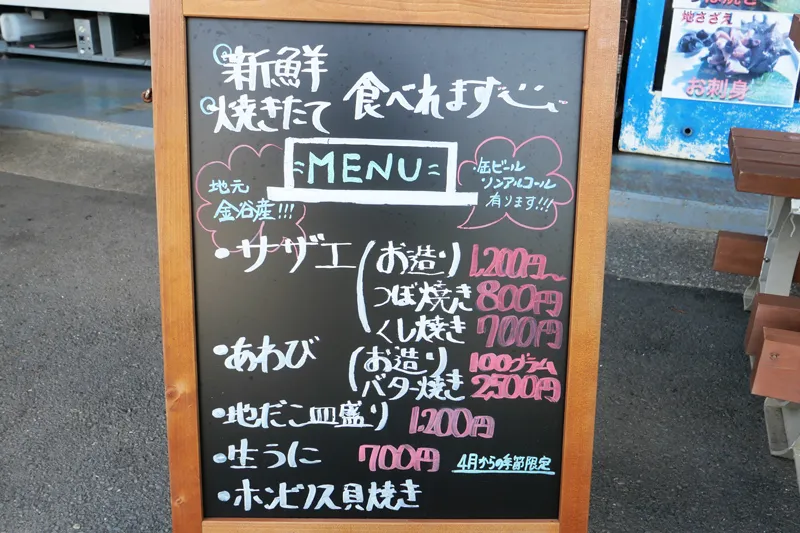 新鮮
焼きたて
食べれます
MENU
地元
金谷産!!!
缶ビール
ノンアルコール
有ります!!!
・サザエ
お造り 1,200円〜
つぼ焼き 800円
くし焼き 700円
・あわび
お造り 100グラム
バター焼き 2,500円
・地だこ皿盛り 1,200円
・生うに 700円 4月からの季節限定
・ホンビノス貝焼き
地さざえ
お刺身